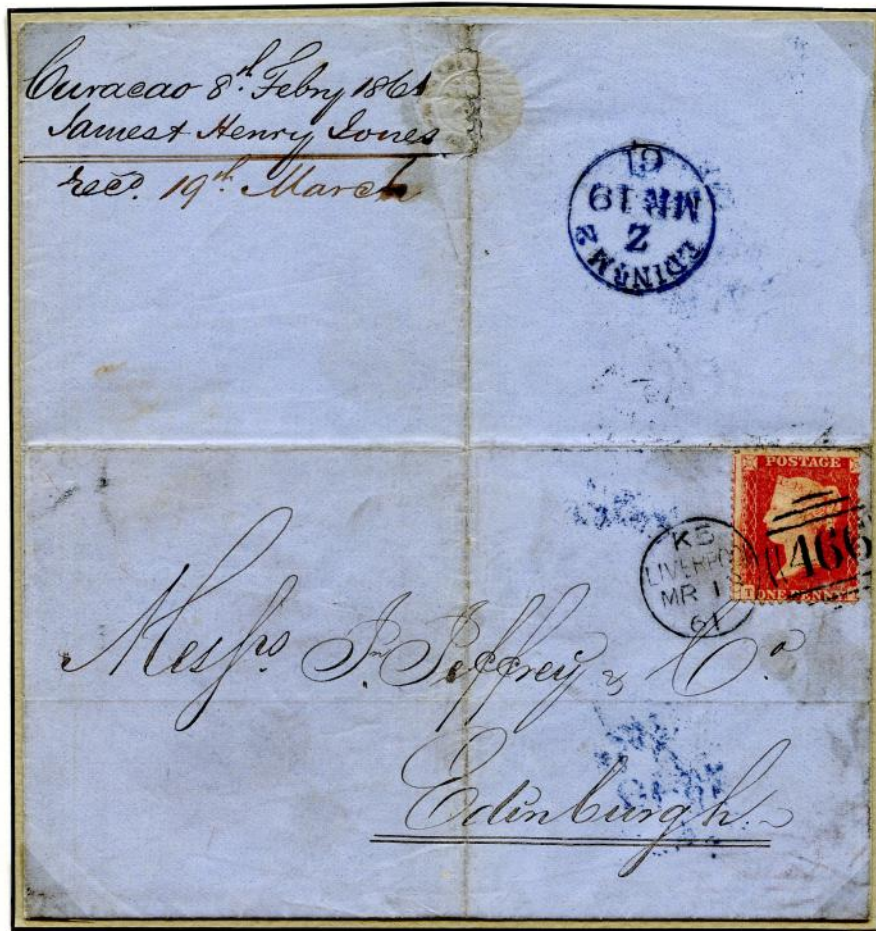 Curacao 8th Febry 1861
James & Henry Jones
recd. 19th March
EDINR M 2
Z
MR 19
61
POSTAGE
466
T ONE PENNY
K5
LIVERPOOL
MR 18
61
Messrs Jn. Jeffrey & Co
Edinburgh